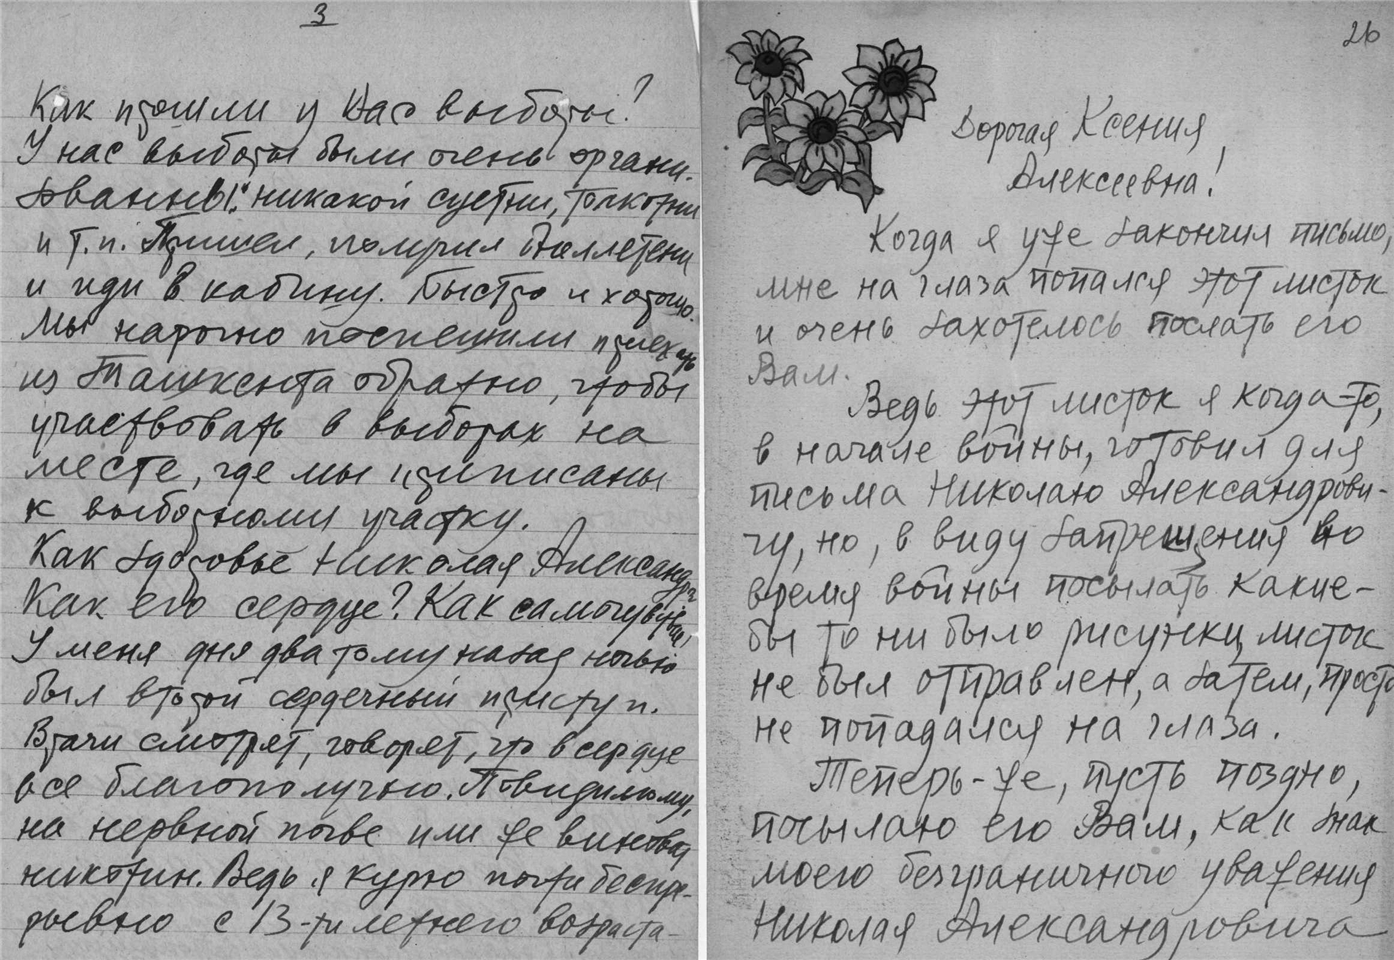 3
Как прошли у Вас выборы?
У нас выборы были очень органи-
зованны: никакой суетни, толкотни
и т.п. Пришел, получил бюллетени
и иди в кабину. Быстро и хорошо.
Мы нарочно поспешили приехать
из Ташкента обратно, чтобы
участвовать в выборах на
месте, где мы приписаны
к выборному участку.
Как здоровье Николая Александр.
Как его сердце? Как самочувствие?
У меня дня два тому назад ночью
был второй сердечный приступ.
Врачи смотрят, говорят, что в сердце
все благополучно. Повидимому,
на нервной почве или же виноват
никотин. Ведь я курю почти беспре-
рывно с 13-ти летнего возраста-
26
Дорогая Ксения
Алексеевна!
Когда я уже закончил письмо,
мне на глаза попался этот листок
и очень захотелось послать его
Вам.
Ведь этот листок я когда-то,
в начале войны, готовил для
письма Николаю Александрови-
чу, но, в виду запрещения во
время войны посылать какие-
бы то ни было рисунки, листок
не был отправлен, а затем, просто
не попадался на глаза.
Теперь-же, пусть поздно,
посылаю его Вам, как знак
моего безграничного уважения
Николая Александровича